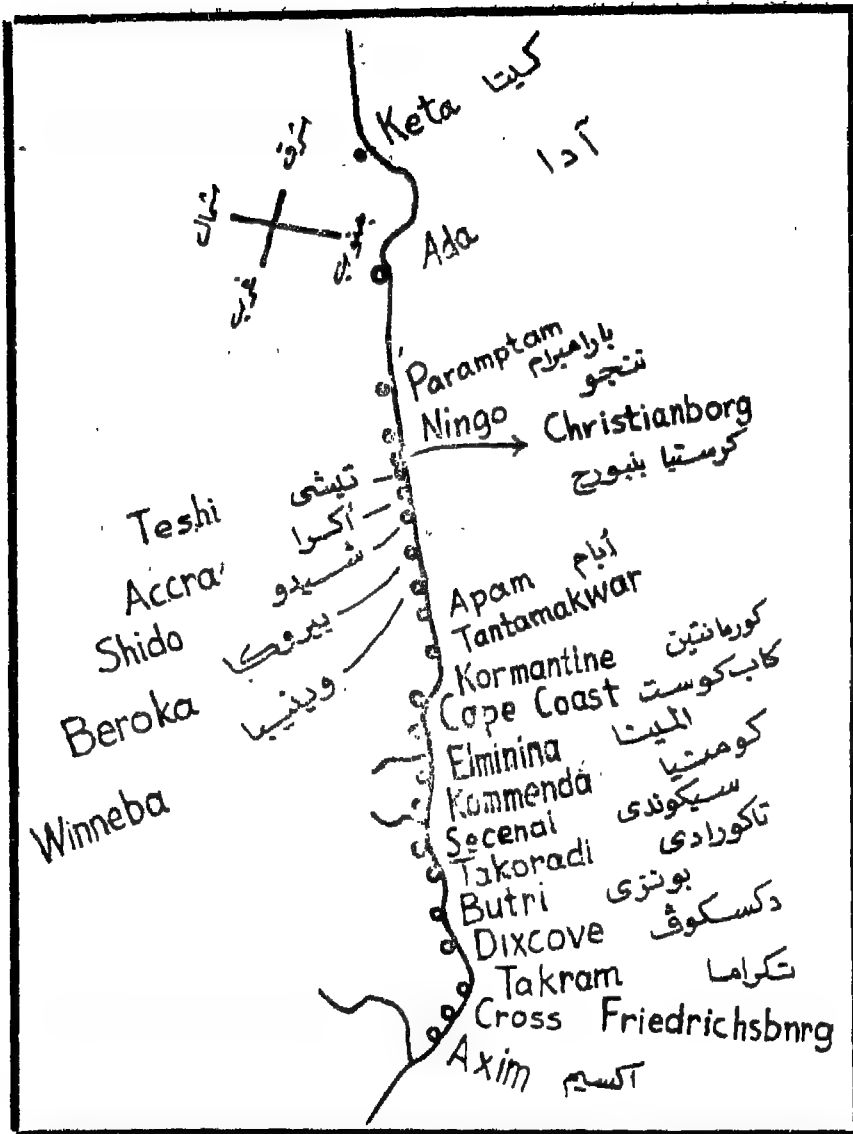 Keta كيتا
آدا
شرق
شمال
جنوب
غرب
Ada
Paramptam باراهبرام
Ningo ننجو
Christianborg
كرستيا بنبورج
Teshi تيشى
Accra أكرا
Shido شيدو
Beroka بيروكا
Winneba وينيبا
Apam أبام
Tantamakwar
Kormantine كورمانتين
Cape Coast كاب كوست
Elminina المينا
Kommenda كومنتيا
Secenai سيكوندى
Takoradi تاكورادى
Butri بوترى
Dixcove دكسكوڤ
Takram تكراما
Cross Friedrichsbnrg
Axim آكسيم